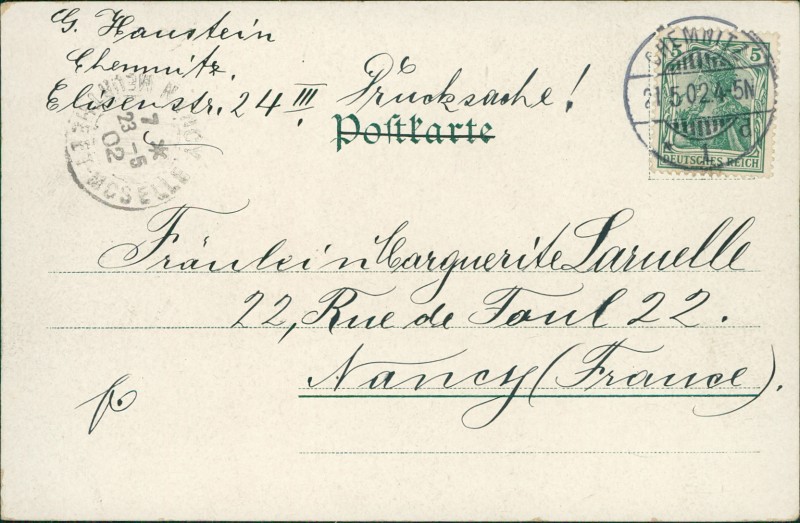 G. Haustein
Chemnitz,
Elisenstr. 24 III
Drucksache!
Postkarte
CHEMNITZ
21.5.02.4-5N
* 1 d
5
DEUTSCHES REICH
NANCY
7 *
23 -5
02
MEURTHE-ET-MOSELLE
Fräulein Marguerite Laruelle
22, Rue de Toul 22.
Nancy (France).
fr